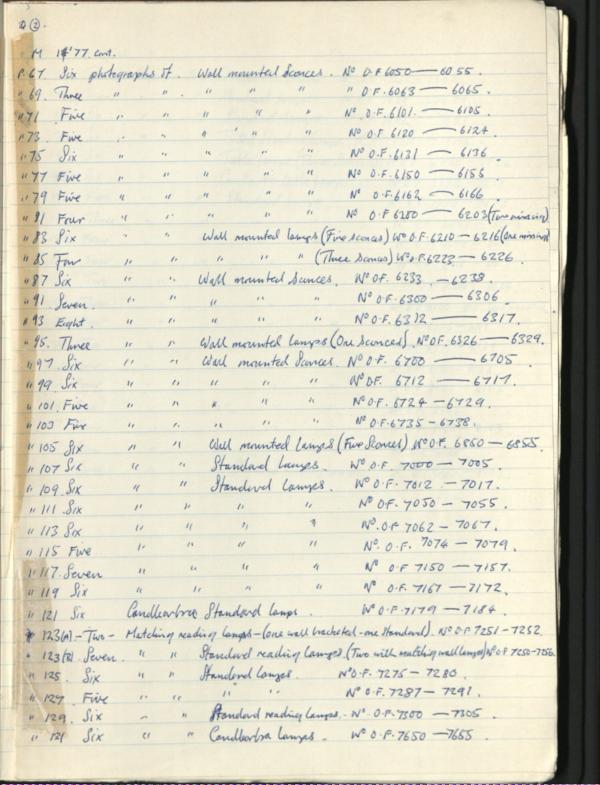 ②.
M 14'77 cont.
P. 67. Six photographs of. Wall mounted Sconces. Nº O.F 6050 — 6055.
" 69. Three " " " " Nº O.F. 6063 — 6065.
" 71 Five " " " " " Nº O.F. 6101 — 6105
" 73. Five " " " " " Nº O.F. 6120 — 6124
" 75 Six " " " " " Nº O.F. 6131 — 6136
" 77 Five " " " " " Nº O.F. 6150 — 6155
" 79 Five " " " " " Nº O.F. 6162 — 6166
" 81 Four " " " " " Nº O.F 6200 — 6203 (Two missing)
" 83 Six " " Wall mounted lamps (Five sconces) Nº O.F. 6210 — 6216 (One missing)
" 85 Four " " " " " (Three Sconces) Nº O.F. 6223 — 6226.
" 87 Six " " Wall mounted Sconces. Nº O.F. 6233 — 6238.
" 91 Seven. " " " " " Nº O.F. 6300 — 6306
" 93 Eight. " " " " " Nº O.F. 6312 — 6317.
" 95. Three " " Wall mounted lamps (One Sconces). Nº O.F. 6326 — 6329.
" 97. Six " " Wall mounted Sconces. Nº O.F. 6700 — 6705
" 99. Six " " " " " Nº O.F. 6712 — 6717.
" 101. Five " " " " " Nº O.F. 6724 — 6729.
" 103 Five " " " " " Nº O.F. 6735 — 6738.
" 105 Six " " Wall mounted lamps (Five Sconces) Nº O.F. 6850 — 6855.
" 107 Six " " Standard lamps. Nº O.F. 7000 — 7005.
" 109. Six " " Standard lamps. Nº O.F. 7012 — 7017.
" 111. Six " " " " Nº O.F. 7050 — 7055.
" 113 Six " " " " Nº O.F 7062 — 7067.
" 115 Five " " " " Nº. O.F. 7074 — 7079.
" 117. Seven " " " " Nº O.F 7150 — 7157.
" 119 Six " " " " Nº O.F. 7167 — 7172.
" 121 Six Candleabra Standard lamps. Nº O.F. 7179 — 7184.
" 123(A) - Two - Matching reading lamps - (one wall bracketed - one Standard). Nº O.F 7251 — 7252.
" 123(B). Seven. " " Standard reading lamps. (Two with matching wall lamps) Nº O.F 7250 - 7256
" 125. Six " " Standard lamps. Nº O.F. 7275 — 7280.
" 127. Five " " " " Nº O.F. 7287 — 7291.
" 129. Six " " Standard reading lamps. - Nº O.F. 7300 — 7305.
" 131 Six " " Candleabra lamps. Nº O.F. 7650 — 7655.